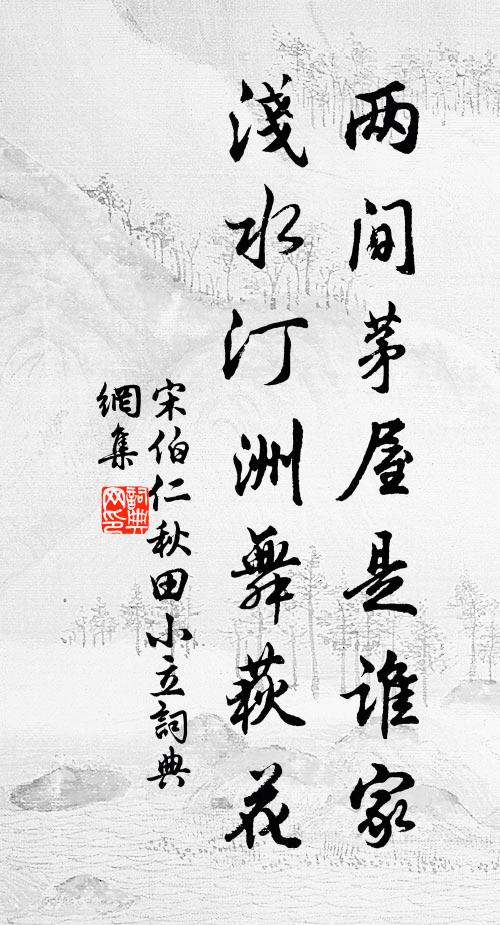 两间茅屋是谁家
淺水汀洲舞萩花
宋伯仁秋田小立詞典
網集
詞典
网印